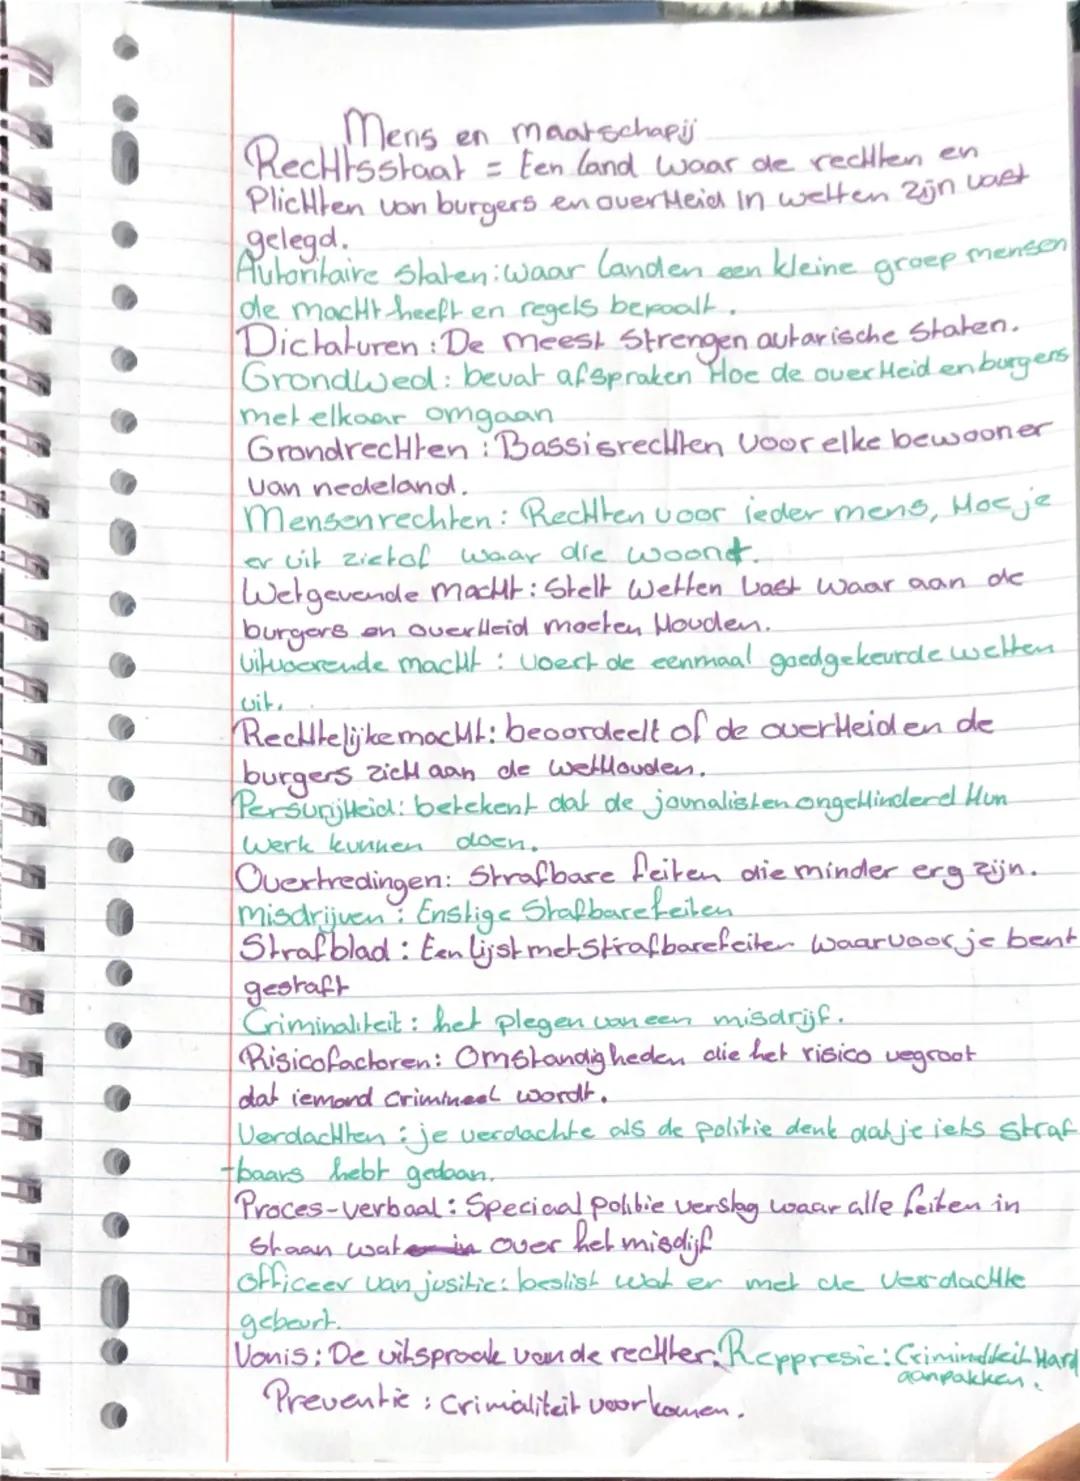 Mens en maatschapij
Rechtsstaat = Een land waar de rechten en
Plichten van burgers en overheid in wetten zijn vast
gelegd.
Autoritaire staten: waar landen een kleine groep mensen
de macht heeft en regels bepaalt.
Dictaturen: De meest strengen autarische staten.
Grondwed: bevat afspraken Hoe de overheid en burgers
met elkaar omgaan
Grondrechten: Bassisrechten voor elke bewooner
van nedeland.
Mensenrechten: Rechten voor ieder mens, Hoe je
er uit ziet of waar die woont.
Wetgevende macht: stelt wetten vast waar aan de
burgers en overheid moeten Houden.
uitvoerende macht: voert de eenmaal goedgekeurde wetten
uit.
Rechtelijke macht: beoordeelt of de overheid en de
burgers zich aan de wet Houden.
Persvrijheid: betekent dat de jounalisten ongehinderd Hun
werk kunnen doen.
Overtredingen: Strafbare feiten die minder erg zijn.
misdrijven: Enstige Stafbare feiten
Strafblad: Een lijst met strafbare feiten waarvoor je bent
gestraft
Criminaliteit: het plegen van een misdrijf.
Risicofactoren: Omstandigheden die het risico vegroot
dat iemand crimineel wordt.
Verdachten: je verdachte als de politie denk dat je iets straf
-baars hebt gedaan.
Proces-verbaal: Speciaal politie verslag waar alle feiten in
staan wat over het misdijf
Officeer van jusitie: beslist wat er met de verdachte
gebeurt.
Vonis: De uitspraak van de rechter. Reppresie: Criminaliteit Hard
aanpakken.
Preventie: Crimaliteit voorkomen.